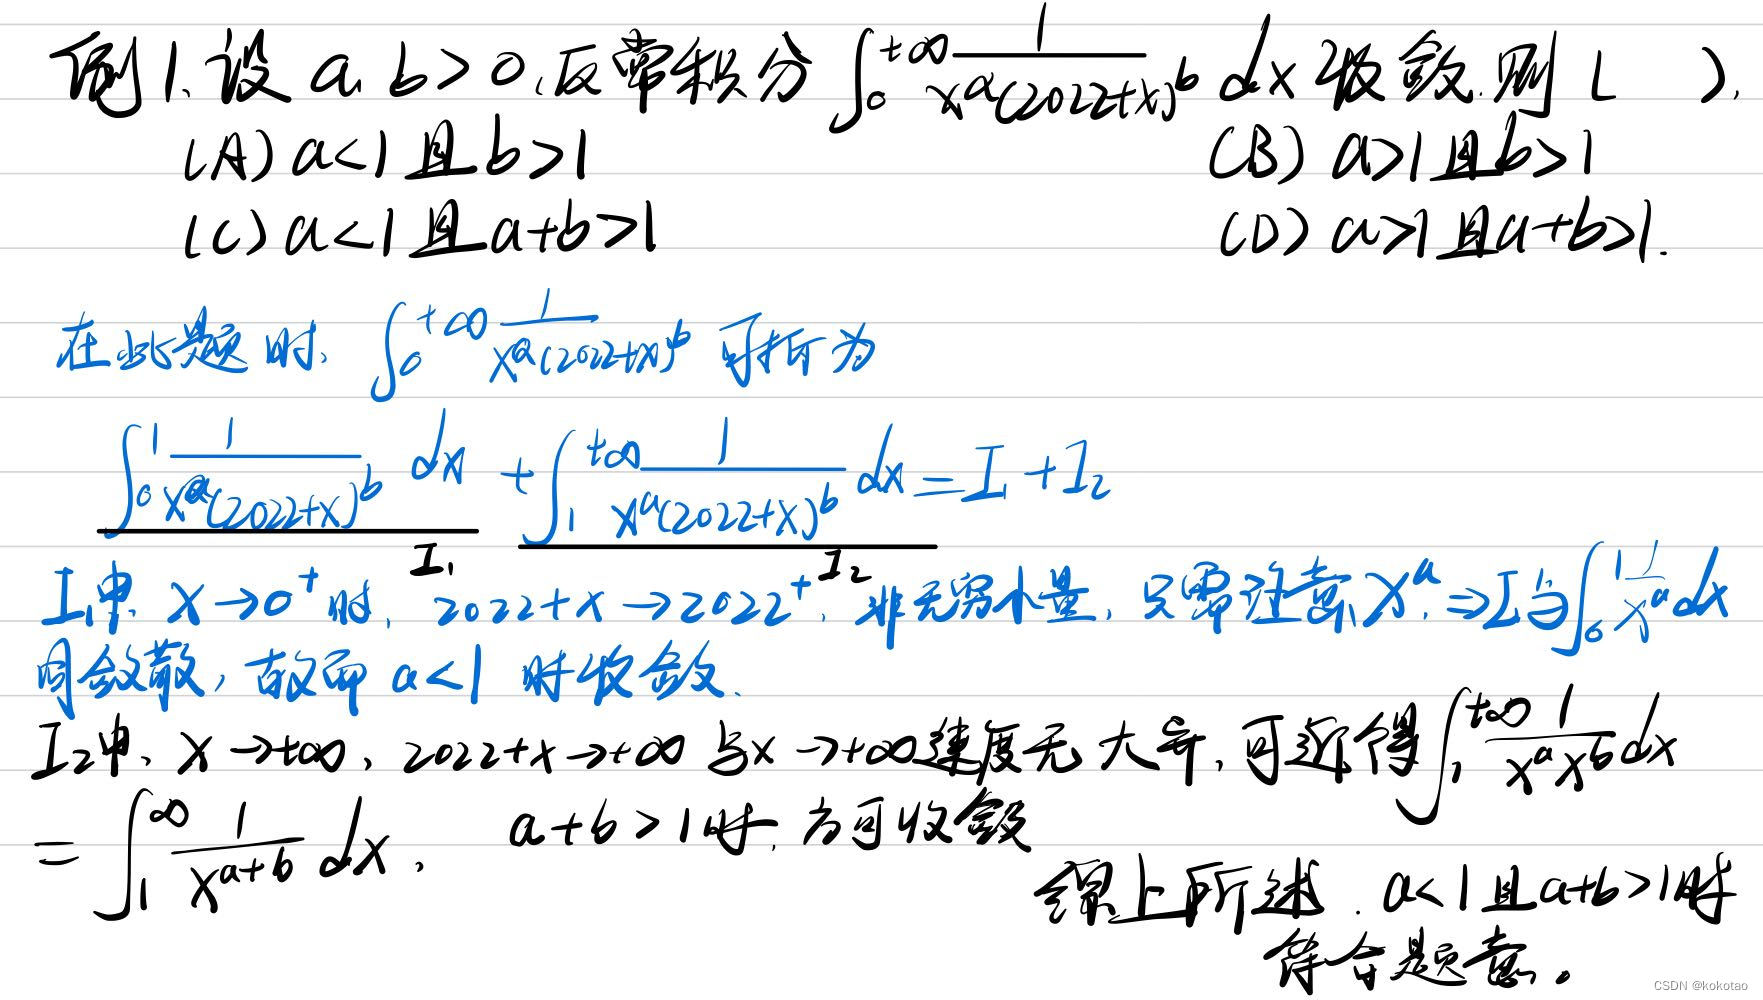 例1.设 a, b>0,反常积分 ∫₀^{+∞} 1/(x^a(2022+x)^b) dx 收敛.则( ).
(A) a<1 且 b>1 (B) a>1 且 b>1
(C) a<1 且 a+b>1 (D) a>1 且 a+b>1.
在此题时, ∫₀^{+∞} 1/(x^a(2022+x)^b) 可拆为
∫₀^1 1/(x^a(2022+x)^b) dx + ∫₁^{+∞} 1/(x^a(2022+x)^b) dx = I₁ + I₂
I₁ I₂
I₁中, x→0⁺时, 2022+x→2022⁺, 非无穷小量, 只需注意x^a, ⇒I与∫₀^1 1/x^a dx
同敛散, 故而 a<1 时收敛.
I₂中, x→+∞, 2022+x→+∞ 与x→+∞速度无大异, 可近得∫₁^{+∞} 1/(x^a x^b) dx
= ∫₁^∞ 1/x^{a+b} dx, a+b>1时, 方可收敛
综上所述, a<1且a+b>1时
符合题意。
CSDN @kokotao